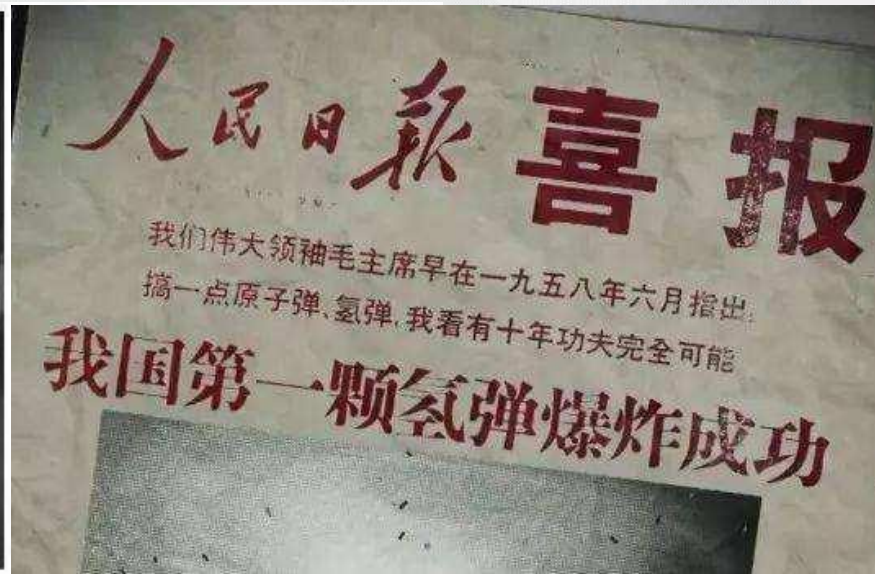 人民日报 喜报
我们伟大领袖毛主席早在一九五八年六月指出:
搞一点原子弹、氢弹,我看有十年功夫完全可能
我国第一颗氢弹爆炸成功